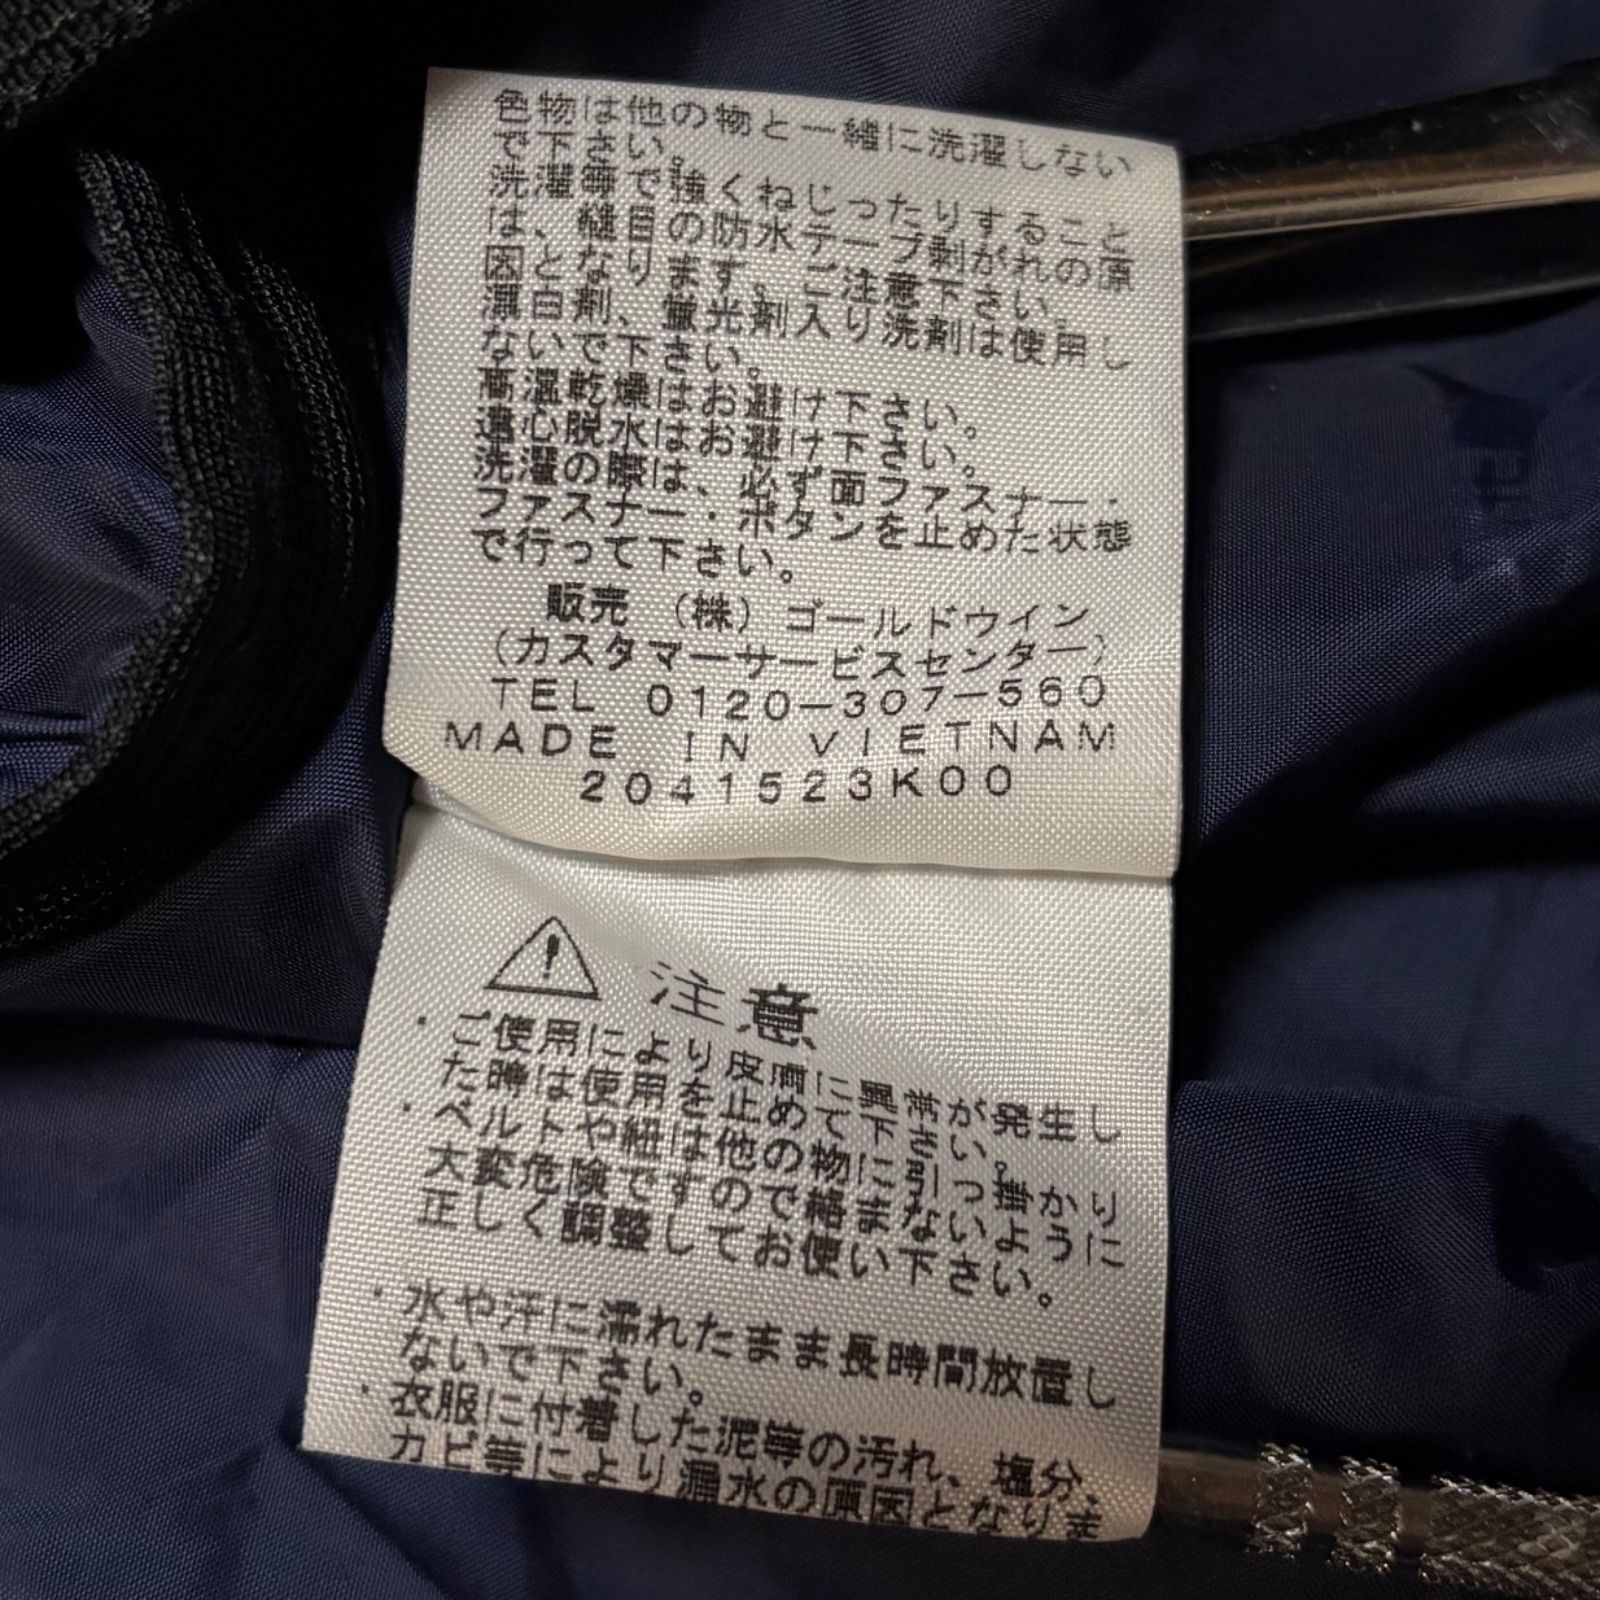 色物は他の物と一緒に洗濯しない
で下さい。
洗濯等で強くねじったりすること
は、縫目の防水テープ剥がれの原
因となります。ご注意下さい。
漂白剤、蛍光剤入り洗剤は使用し
ないで下さい。
高温乾燥はお避け下さい。
遠心脱水はお避け下さい。
洗濯の際は、必ず面ファスナー・
ファスナー・ボタンを止めた状態
で行って下さい。
販売 (株) ゴールドウイン
(カスタマーサービスセンター)
TEL 0120-307-560
MADE IN VIETNAM
2041523K00
注意
・ご使用により皮膚に異常が発生し
た時は使用を止めて下さい。
・ベルトや紐は他の物に引っ掛かり
大変危険ですので絡まないように
正しく調整してお使い下さい。
・水や汗に濡れたまま長時間放置し
ないで下さい。
・衣服に付着した泥等の汚れ、塩分、
カビ等により漏水の原因となりま